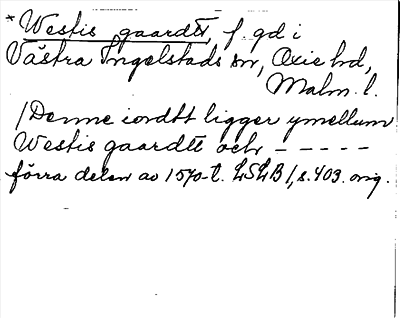 *Westis gaardtt, f. gd i
Västra Ingelstads sn, Oxie hd,
Malm. l.
/Denne iordtt ligger ymellum
Westis gaardtt och - - - - -
förra delen av 1570-t. LSLB 1, s. 403. orig.